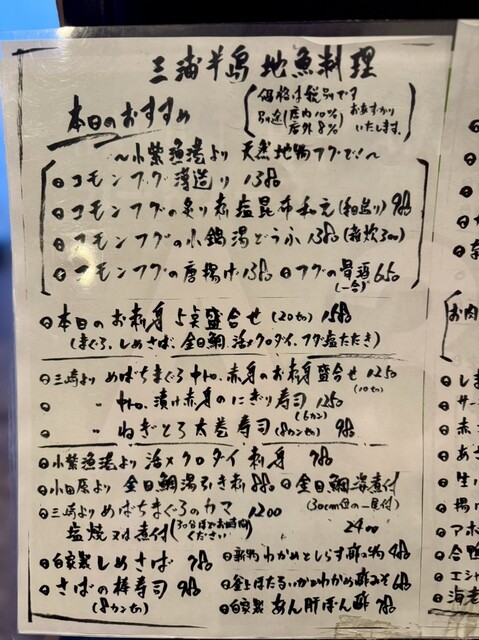 三浦半島 地魚料理
本日のおすすめ
価格は税別です
別途(店内10% 店外8%) お預かりいたします。
〜小柴漁港より 天然地物フグで!〜
コモンフグ 薄造り 13品
コモンフグの炙り刺 塩昆布和え 9品
コモンフグの小鍋湯どうふ 13品 (雑炊300)
コモンフグの唐揚げ 13品 フグの骨酒 650
(一合)
本日のお刺身 5点盛合せ (20切) 15品
(まぐろ、しめさば、金目鯛、活〆クロダイ、フグ塩たたき)
三崎より めばちまぐろ 中トロ、赤身のお刺身盛合せ 1250
(10切)
〃 中トロ、漬け赤身のにぎり寿司 1250
(6カン)
〃 ねぎとろ太巻寿司 (8カンセ) 9品
小柴漁港より 活〆クロダイ刺身 9品
小田原より 金目鯛湯引き刺 金目鯛 煮付
(30cm位の一尾付)
三崎より めばちまぐろのカマ 1200 2400
塩焼 又は 煮付 (30分ほどお時間ください)
自家製 しめさば 7品 新物 わかめとしらす酢の物 4品
さばの棒寿司 9品 釜上ほたるいかとわかめ酢みそ 6品
(8カンセ) 自家製 あん肝ぽん酢 7品
お肉